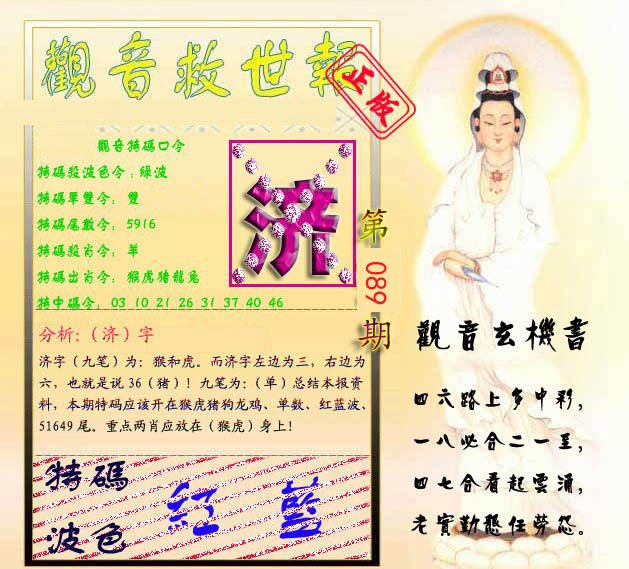 觀音救世報
正版
觀音特碼口令
特碼殺波色令:綠波
特碼單雙令: 雙
特碼尾數令: 5916
特碼殺肖令: 羊
特碼出肖令: 猴虎猪龍兔
特中碼令: 03 10 21 26 31 37 40 46
济
第089期
分析:（济）字
济字（九笔）为：猴和虎。而济字左边为三，右边为
六，也就是说 36（猪）！九笔为：（单）总结本报资
料，本期特码应该开在猴虎猪狗龙鸡、单数、红蓝波、
51649 尾。重点两肖应放在（猴虎）身上！
特碼
波色
紅 藍
觀音玄機書
四六路上多中彩，
一八必合二一至，
四七合看起雲涌，
老實勤懇任勞怨。